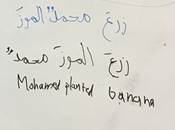 زرعَ محمدٌ الموزَ
زرعَ الموزَ محمدٌ
Mohamed planted banana